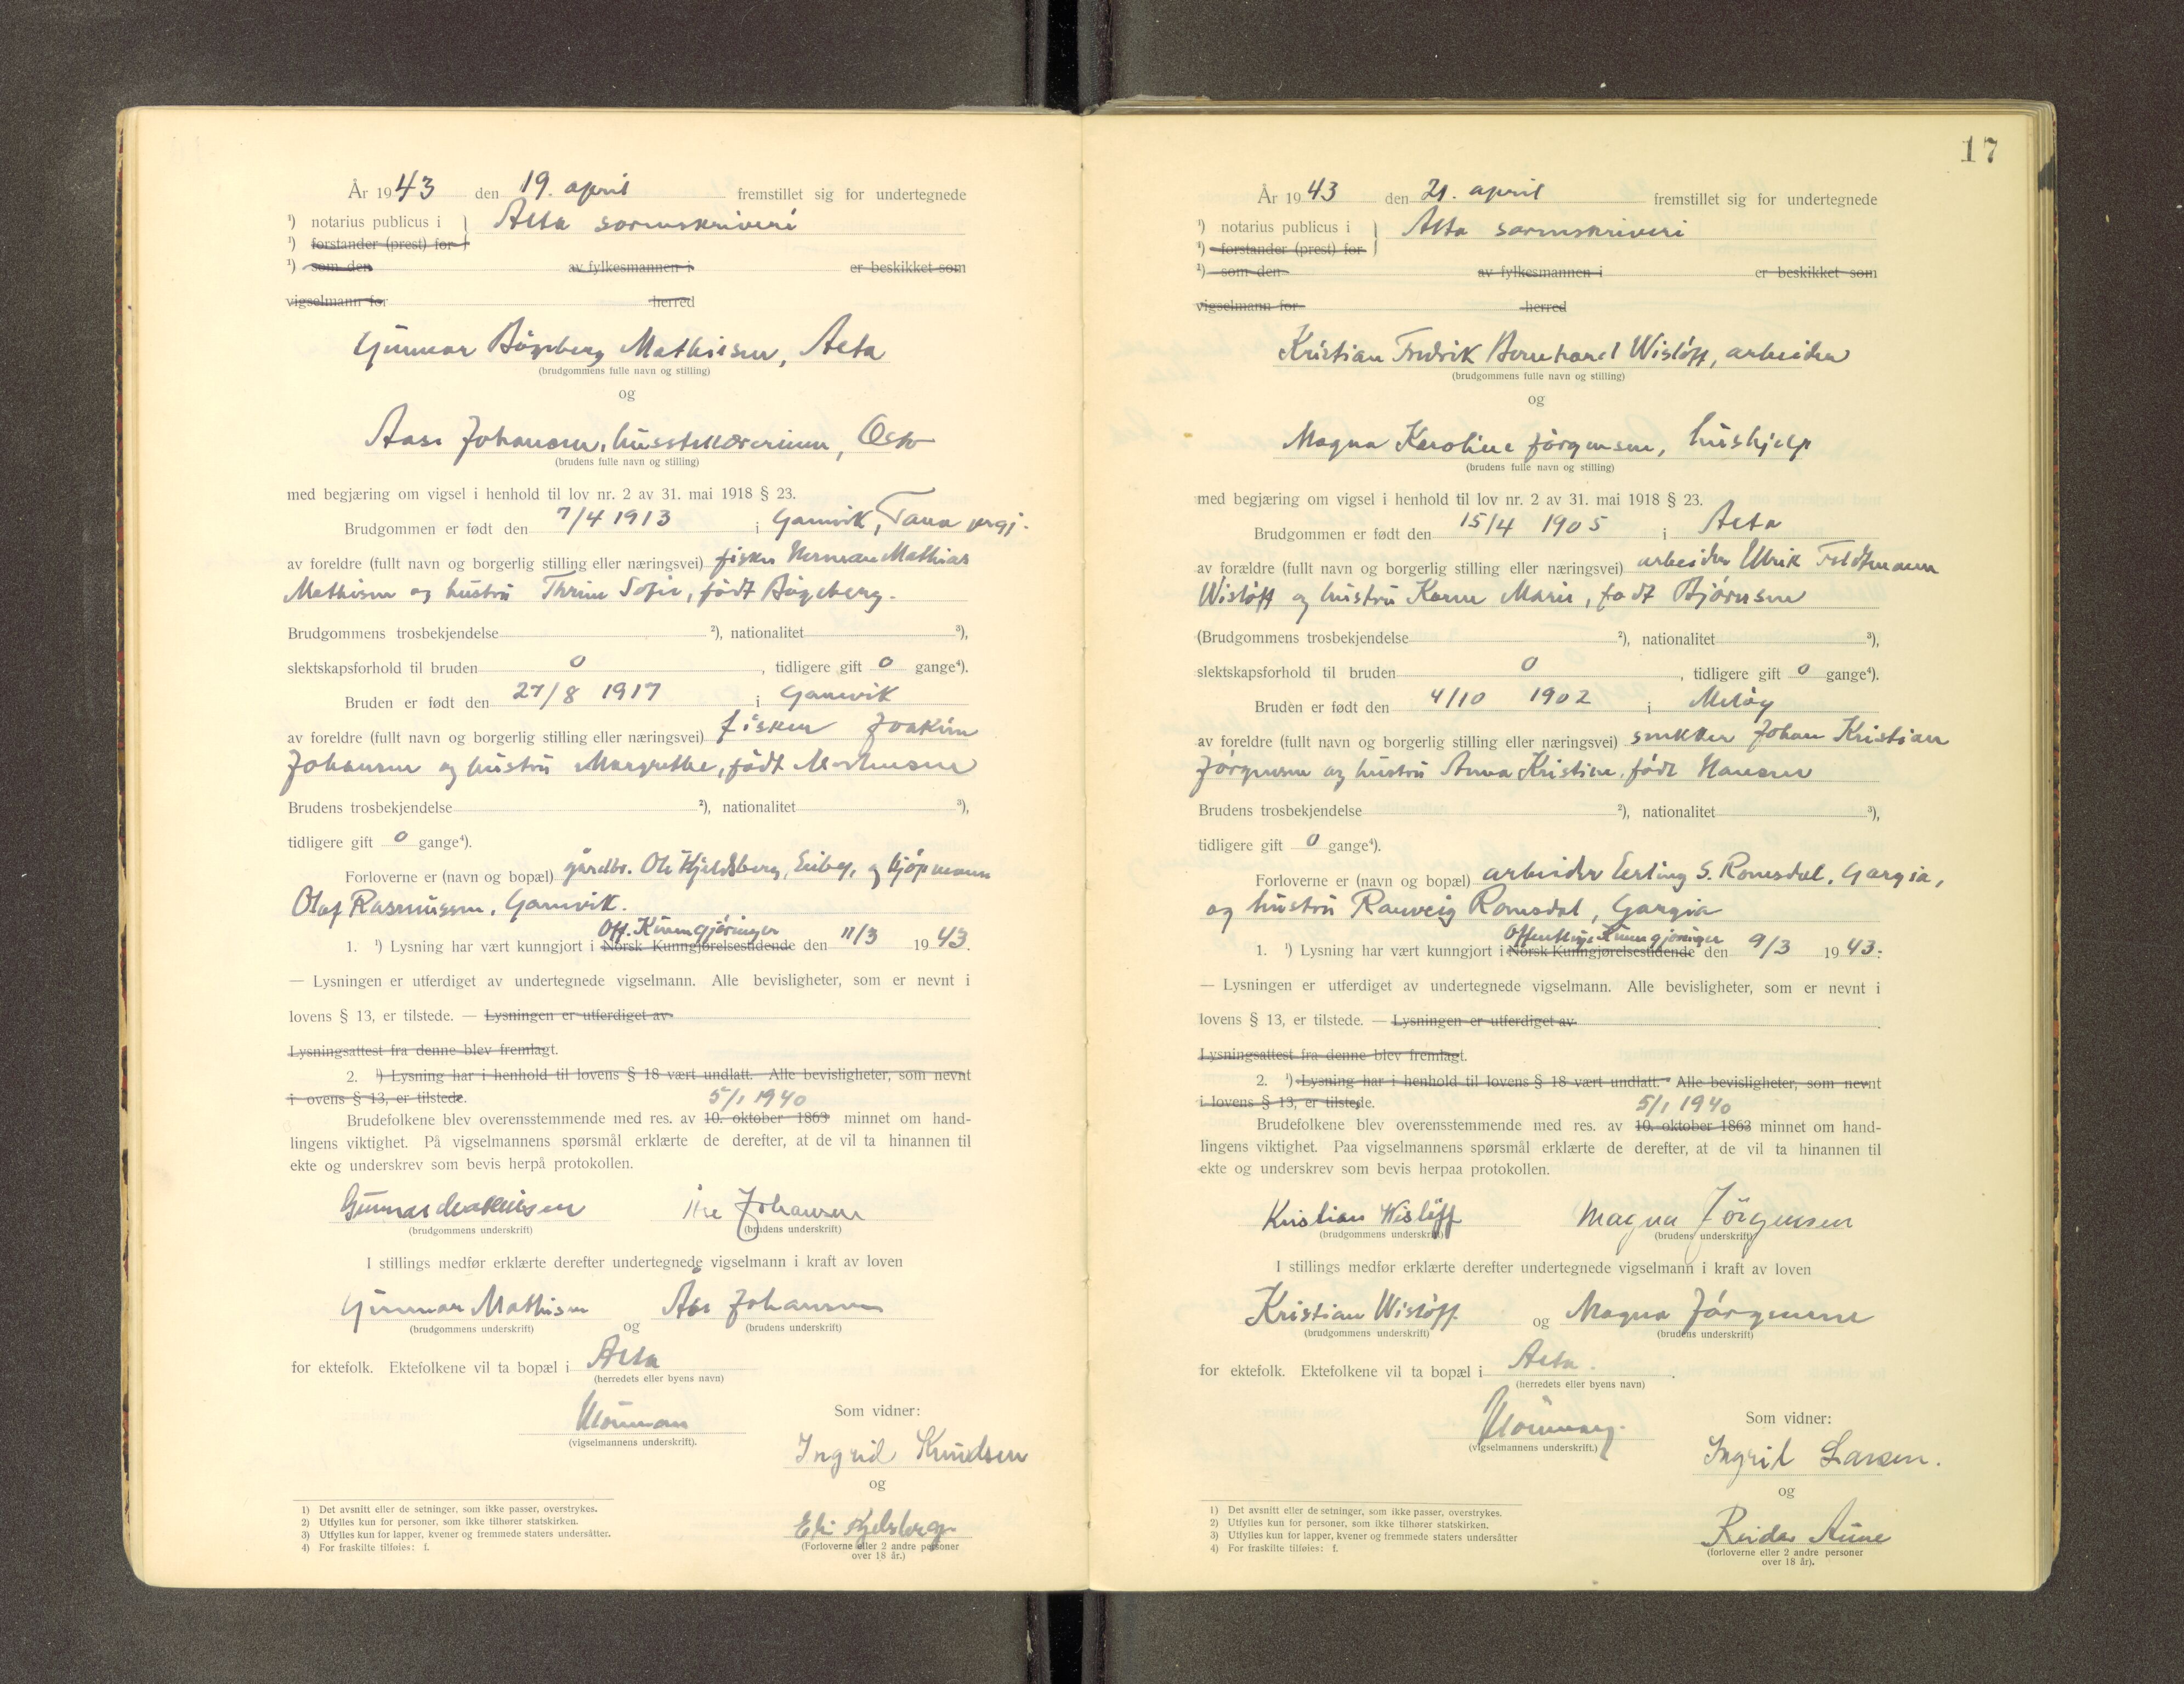 År 1943 den 19. april fremstillet sig for undertegnede
¹) notarius publicus i } Alta sorenskriveri
¹) forstander (prest) for
¹) som den av fylkesmannen i er beskikket som
vigselmann for herred
Gunnar Bögeberg Mathisen, Alta
(brudgommens fulle navn og stilling)
og
Aase Johansen, husstellærerinne, Oslo
(brudens fulle navn og stilling)
med begjæring om vigsel i henhold til lov nr. 2 av 31. mai 1918 § 23.
Brudgommen er født den 7/4 1913 i Gamvik, Tana prgj.
av foreldre (fullt navn og borgerlig stilling eller næringsvei) fisker Herman Mathias
Mathisen og hustru Thrine Sofie, født Bögeberg.
Brudgommens trosbekjendelse ²), nationalitet ³),
slektskapsforhold til bruden 0, tidligere gift 0 gange⁴).
Bruden er født den 27/8 1917 i Gamvik
av foreldre (fullt navn og borgerlig stilling eller næringsvei) fisker Joakim
Johansen og hustru Margrethe, født
Brudens trosbekjendelse ²), nationalitet ³),
tidligere gift 0 gange⁴).
Forloverne er (navn og bopæl) gårdbr. Ole Kjeldsberg, Eiby, og kjöpmann
Olaf Rasmussen, Gamvik.
Off. Kunngjöringer
1. ¹) Lysning har vært kunngjort i Norsk Kunngjørelsestidende den 11/3 1943.
— Lysningen er utferdiget av undertegnede vigselmann. Alle bevisligheter, som er nevnt i
lovens § 13, er tilstede. — Lysningen er utferdiget av
Lysningsattest fra denne blev fremlagt.
2. ¹) Lysning har i henhold til lovens § 18 vært undlatt. Alle bevisligheter, som nevnt
i ovens § 13, er tilstede.
5/1 1940
Brudefolkene blev overensstemmende med res. av 10. oktober 1863 minnet om hand-
lingens viktighet. På vigselmannens spørsmål erklærte de derefter, at de vil ta hinannen til
ekte og underskrev som bevis herpå protokollen.
Gunnar Mathisen Åse Johansen
(brudgommens underskrift) (brudens underskrift)
I stillings medfør erklærte derefter undertegnede vigselmann i kraft av loven
Gunnar Mathisen og Åse Johansen
(brudgommens underskrift) (brudens underskrift)
for ektefolk. Ektefolkene vil ta bopæl i Alta
(herredets eller byens navn)
(vigselmannens underskrift).
Som vidner:
Ingrid Knudsen
og
Eli Kjelsberg
(Forloverne eller 2 andre personer
over 18 år.)
1) Det avsnitt eller de setninger, som ikke passer, overstrykes.
2) Utfylles kun for personer, som ikke tilhører statskirken.
3) Utfylles kun for lapper, kvener og fremmede staters undersåtter.
4) For fraskilte tilføies: f.
17
År 1943 den 21. april fremstillet sig for undertegnede
¹) notarius publicus i } Alta sorenskriveri
¹) forstander (prest) for
¹) som den av fylkesmannen i er beskikket som
vigselmann for herred
Kristian Fredrik Bernhard Wislöff, arbeider
(brudgommens fulle navn og stilling)
og
Magna Karoline Jörgensen, hushjelp
(brudens fulle navn og stilling)
med begjæring om vigsel i henhold til lov nr. 2 av 31. mai 1918 § 23.
Brudgommen er født den 15/4 1905 i Alta
av forældre (fullt navn og borgerlig stilling eller næringsvei) arbeider Ulrik Feldtmann
Wislöff og hustru Karen Marie, födt Björnsen
(Brudgommens trosbekjendelse ²), nationalitet ³),
slektskapsforhold til bruden 0, tidligere gift 0 gange⁴).
Bruden er født den 4/10 1902 i Melöy
av foreldre (fullt navn og borgerlig stilling eller næringsvei) snekker Johan Kristian
Jörgensen og hustru Anna Kristine, född Hansen
Brudens trosbekjendelse ²), nationalitet ³),
tidligere gift 0 gange⁴).
Forloverne er (navn og bopæl) arbeider Erling S. Romsdal, Gargia,
og hustru Ranveig Romsdal, Gargia
Offentlige Kunngjöringer
1. ¹) Lysning har vært kunngjort i Norsk Kunngjørelsestidende den 9/3 1943.
— Lysningen er utferdiget av undertegnede vigselmann. Alle bevisligheter, som er nevnt i
lovens § 13, er tilstede. — Lysningen er utferdiget av
Lysningsattest fra denne blev fremlagt.
2. ¹) Lysning har i henhold til lovens § 18 vært undlatt. Alle bevisligheter, som nevnt
i lovens § 13, er tilstede.
5/1 1940
Brudefolkene blev overensstemmende med res. av 10. oktober 1863 minnet om hand-
lingens viktighet. Paa vigselmannens spørsmål erklærte de derefter, at de vil ta hinannen til
ekte og underskrev som bevis herpaa protokollen.
Kristian Wislöff Magna Jörgensen
(brudgommens underskrift) (brudens underskrift)
I stillings medfør erklærte derefter undertegnede vigselmann i kraft av loven
Kristian Wislöff og Magna Jörgensen
(brudgommens underskrift) (brudens underskrift)
for ektefolk. Ektefolkene vil ta bopæl i Alta.
(herredets eller byens navn)
(vigselmannens underskrift.)
Som vidner:
Ingrid Larsen.
og
Reidar Aune
(forloverne eller 2 andre personer
over 18 år).
1) Det avsnitt eller de setninger, som ikke passer, overstrykes.
2) Utfylles kun for personer, som ikke tilhører statskirken.
3) Utfylles kun for lapper, kvener og fremmede staters undersåtter
4) For fraskilte tilføies: f.